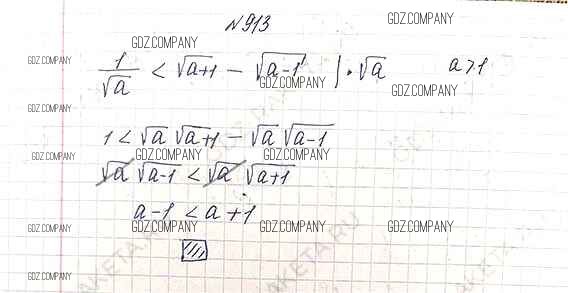 №913
GDZ.COMPANY
GDZ.COMPANY
GDZ.COMPANY
1/√a < √a+1 − √a-1 | · √a    a>1
GDZ.COMPANY
GDZ.COMPANY
GDZ.COMPANY
1 < √a √a+1 − √a √a-1
GDZ.COMPANY
GDZ.COMPANY
GDZ.COMPANY
GDZ.COMPANY
√a √a-1 < √a √a+1
a-1 < a+1
GDZ.COMPANY
GDZ.COMPANY
GDZ.COMPANY
GDZ.COMPANY
GDZ.COMPANY